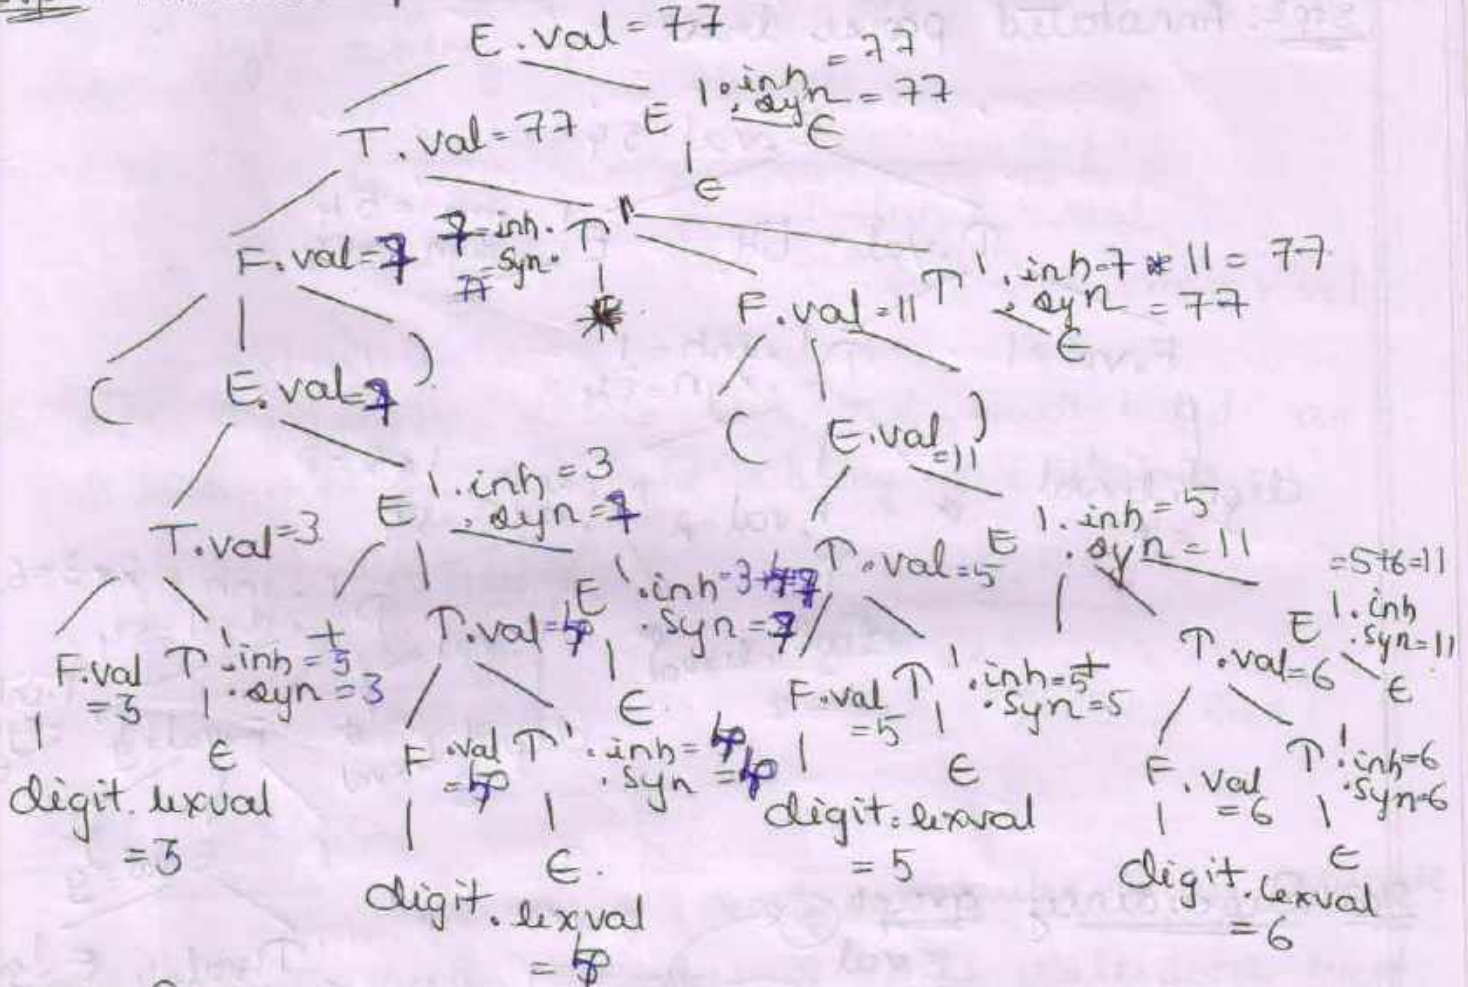 E.val = 77
= 77
E '.inh
.syn = 77
T.val = 77
ϵ
ϵ
F.val = 7
7 = inh. T'
77 = syn.
*
F.val = 11
T '.inh = 7 * 11 = 77
.syn = 77
ϵ
( E.val = 7 )
( E.val = 11 )
T.val = 3
E '.inh = 3
.syn = 7
T.val = 5
E '.inh = 5
.syn = 11
= 5+6 = 11
+
T.val =
E '.inh = 3+4=7
.syn = 7
ϵ
+
T.val = 6
E '.inh
.syn = 11
ϵ
F.val = 3
T '.inh = 3
.syn = 3
ϵ
F.val =
T '.inh =
.syn =
ϵ
F.val = 5
T '.inh = 5
.syn = 5
ϵ
F.val = 6
T '.inh = 6
.syn = 6
ϵ
digit.lexval
= 3
digit.lexval
=
digit.lexval
= 5
digit.lexval
= 6